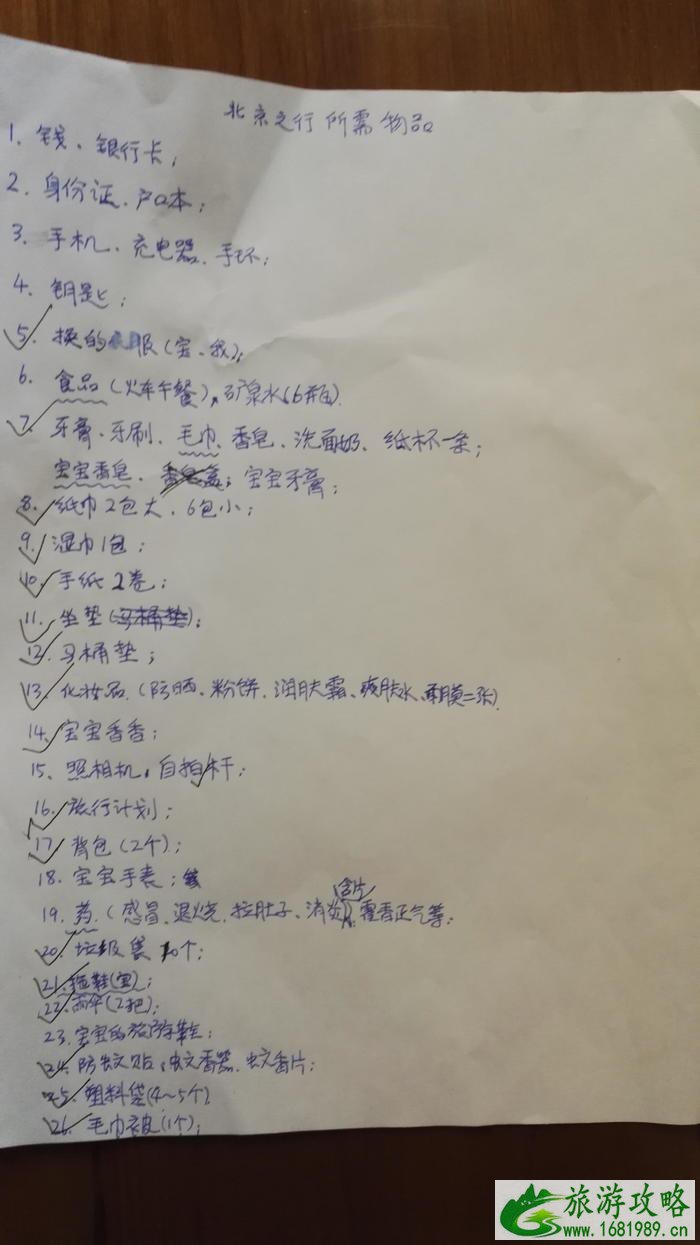 北京之行所需物品
1、钱、银行卡;
2、身份证、户口本;
3、手机、充电器、手环;
4、钥匙;
5、换的 服(宝、我);
6、食品(火车午餐)、矿泉水(6瓶).
7、牙膏、牙刷、毛巾、香皂、洗面奶、纸杯一条;
宝宝香皂、香皂盒;宝宝牙膏;
8、纸巾2包大、6包小;
9、湿巾1包;
10、手纸2卷;
11、坐垫(马桶垫);
12、马桶垫;
13、化妆品.(防晒、粉饼、润肤霜、爽肤水、面膜二张)
14、宝宝香香;
15、照相机、自拍杆;
16、旅行计划;
17、背包(2个);
18、宝宝手表;
含片
19、药.(感冒、退烧、拉肚子、消炎)、藿香正气等;
20、垃圾袋10个;
21、拖鞋(宝);
22、雨伞(2把);
23、宝宝的旅游鞋;
24、防蚊贴、蚊香器、蚊香片;
25、塑料袋(4~5个)
26、毛巾被(1个);
旅游攻略
www.1681989.cn